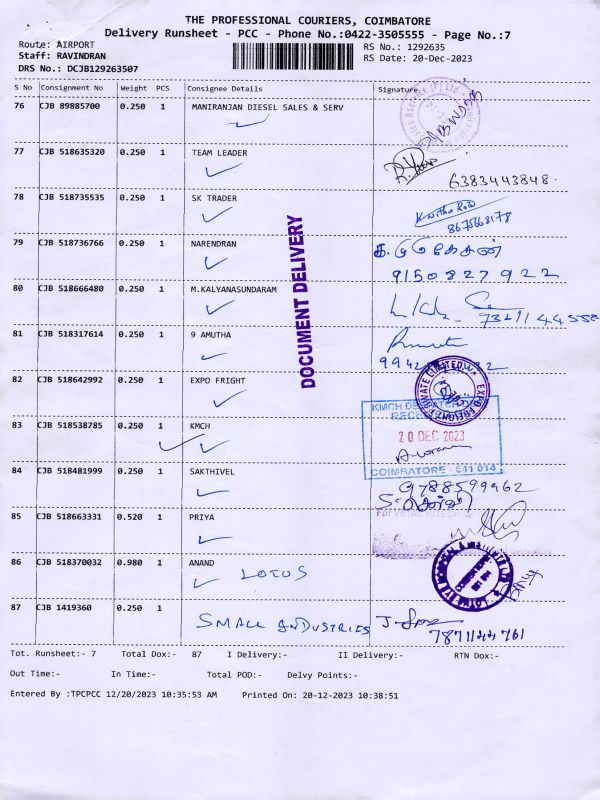 THE PROFESSIONAL COURIERS, COIMBATORE
Delivery Runsheet - PCC - Phone No.:0422-3505555 - Page No.:7
Route: AIRPORT RS No.: 1292635
Staff: RAVINDRAN RS Date: 20-Dec-2023
DRS No.: DCJB129263507
S No Consignment No Weight PCS Consignee Details Signature
76 CJB 89885700 0.250 1 MANIRANJAN DIESEL SALES & SERV
77 CJB 518635320 0.250 1 TEAM LEADER
6383443848.
78 CJB 518735535 0.250 1 SK TRADER
8675668178
79 CJB 518736766 0.250 1 NARENDRAN
9150827922
80 CJB 518666480 0.250 1 M.KALYANASUNDARAM
DOCUMENT DELIVERY
81 CJB 518317614 0.250 1 9 AMUTHA
82 CJB 518642992 0.250 1 EXPO FRIGHT
EXPO FREIGHT PRIVATE LIMITED
83 CJB 518538785 0.250 1 KMCH
20 DEC 2023
COIMBATORE - 641 014
84 CJB 518481999 0.250 1 SAKTHIVEL
9788599962
85 CJB 518663331 0.520 1 PRIYA
86 CJB 518370032 0.980 1 ANAND
LOTUS
87 CJB 1419360 0.250 1
SMALL INDUSTRIES
7871144761
Tot. Runsheet:- 7 Total Dox:- 87 I Delivery:- II Delivery:- RTN Dox:-
Out Time:- In Time:- Total POD:- Delvy Points:-
Entered By :TPCPCC 12/20/2023 10:35:53 AM Printed On: 20-12-2023 10:38:51